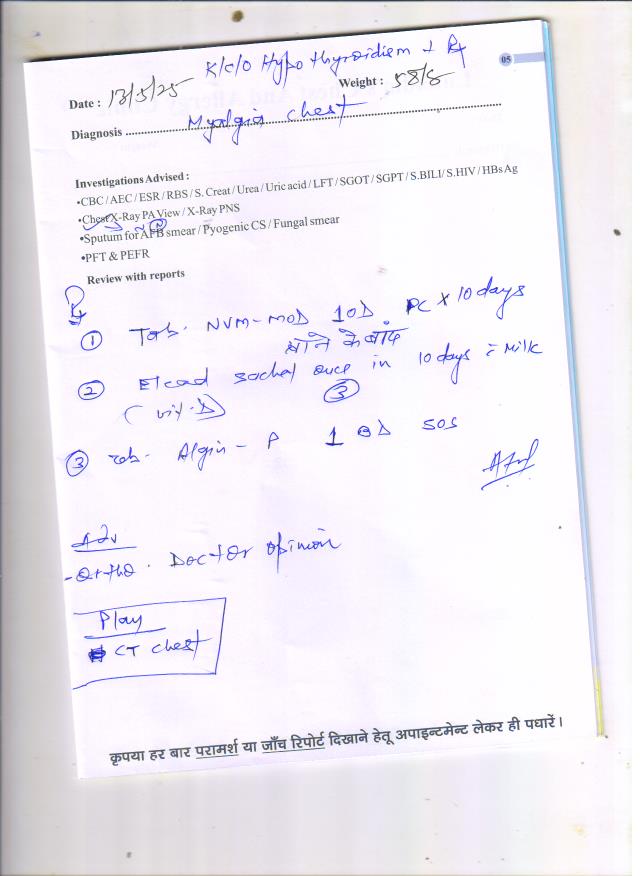 05
K/c/o Hypothyroidism + Rx
Date : 13/5/25 Weight : 58/8
Diagnosis Myalgia chest
Investigations Advised :
•CBC / AEC / ESR / RBS / S. Creat / Urea / Uric acid / LFT / SGOT / SGPT / S.BILI/ S.HIV / HBs Ag
•Chest X-Ray PA View / X-Ray PNS
•Sputum for AFB smear / Pyogenic CS / Fungal smear
•PFT & PEFR
Review with reports
① Tab. NVM-MOD 1OD PC X 10 days
खाने के बाद
② sachet once in 10 days = Milk
(vit. D) ③
③ Tab. Algin - P 1 BD SOS
Adv
- Ortho. Doctor opinion
Plan
CT chest
कृपया हर बार परामर्श या जाँच रिपोर्ट दिखाने हेतू अपाइन्टमेन्ट लेकर ही पधारें।